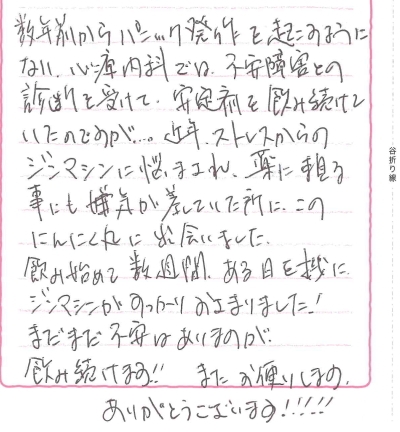 数年前からパニック発作を起こすように
なり、心療内科では、不安障害との
診断を受けて、安定剤を飲み続けて
いたのですが…。近年、ストレスからの
ジンマシンに悩まされ、薬に頼る
事にも嫌気が差していた所に、この
にんにく丸に出会いました。
飲み始めて数週間、ある日を境に
ジンマシンがすっかりおさまりました!
まだまだ不安はありますが、
飲み続けます!! またお便りします。
ありがとうございます!!!!!
谷折り線